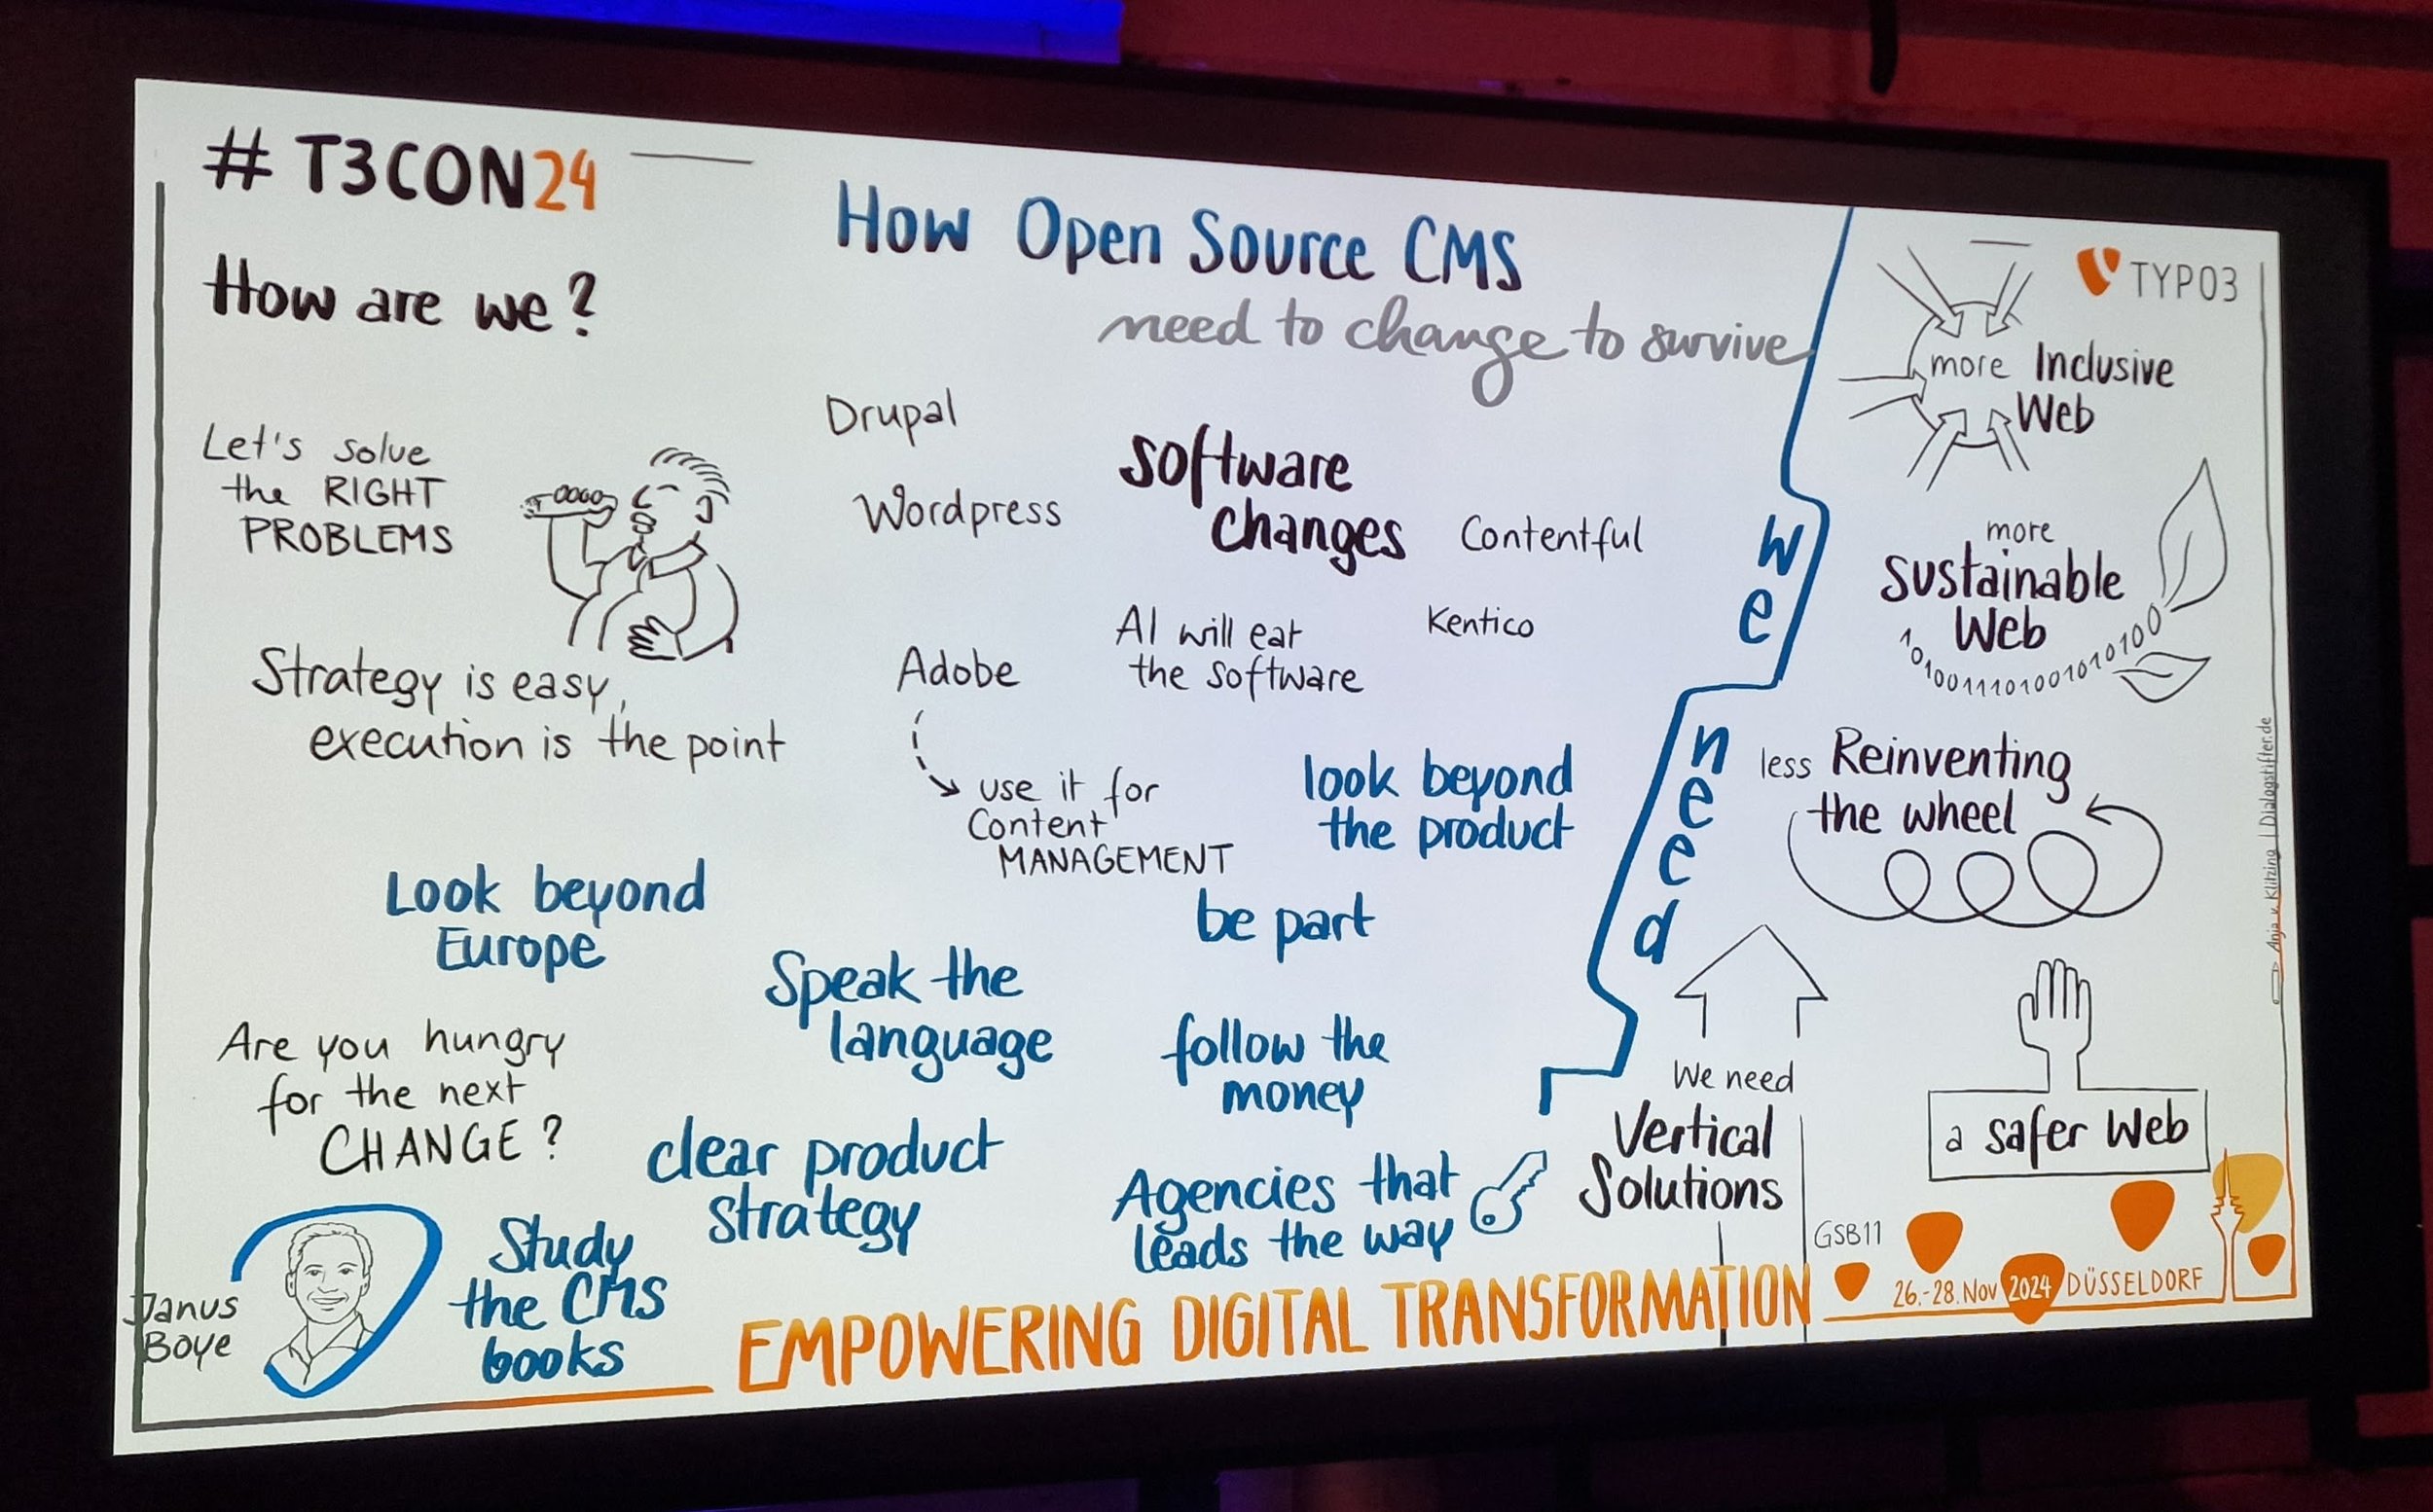 # T3CON24
How are we?
How Open Source CMS
need to change to survive
TYPO3
Let's solve
the RIGHT
PROBLEMS
Strategy is easy,
execution is the point
Drupal
Wordpress
Software
changes
Contentful
AI will eat
the software
Kentico
Adobe
use it for
Content
MANAGEMENT
look beyond
the product
Look beyond
Europe
be part
Speak the
language
follow the
money
Are you hungry
for the next
CHANGE?
clear product
strategy
Agencies that
leads the way
Janus
Boye
Study
the CMS
books
we
need
more Inclusive
Web
more
sustainable
Web
101001110100101010100
less Reinventing
the wheel
We need
Vertical
Solutions
a safer Web
GSB11
EMPOWERING DIGITAL TRANSFORMATION
26.-28. Nov 2024 DÜSSELDORF
Anja v. Klitzing | Dialogstifter.de